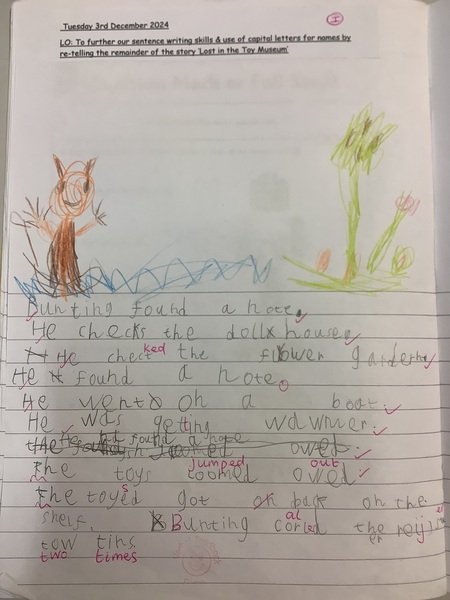 I
Tuesday 3rd December 2024
LO: To further our sentence writing skills & use of capital letters for names by
re-telling the remainder of the story 'Lost in the Toy Museum'
Bunting found a note.
He checks the dollx house.
He checked the flower garden
He found a note.
He went on a boat.
He was geting wdwmer.
He found a note
the toys toomed owed.
jumped out
the toyes got on back on the
shelf. Bunting corled the
tow tins
two times